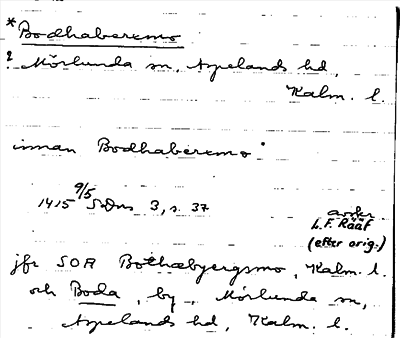 *Bodhaberemo
? Mörlunda sn, Aspelands hd,
Kalm. l.
innan Bodhaberemo
1415 9/5 SDns 3, s. 37
avskr
L.F. Rääf
(efter orig.)
jfr SOA Bothæbyergsmo, Kalm. l.
och Boda, by, Mörlunda sn,
Aspelands hd, Kalm. l.